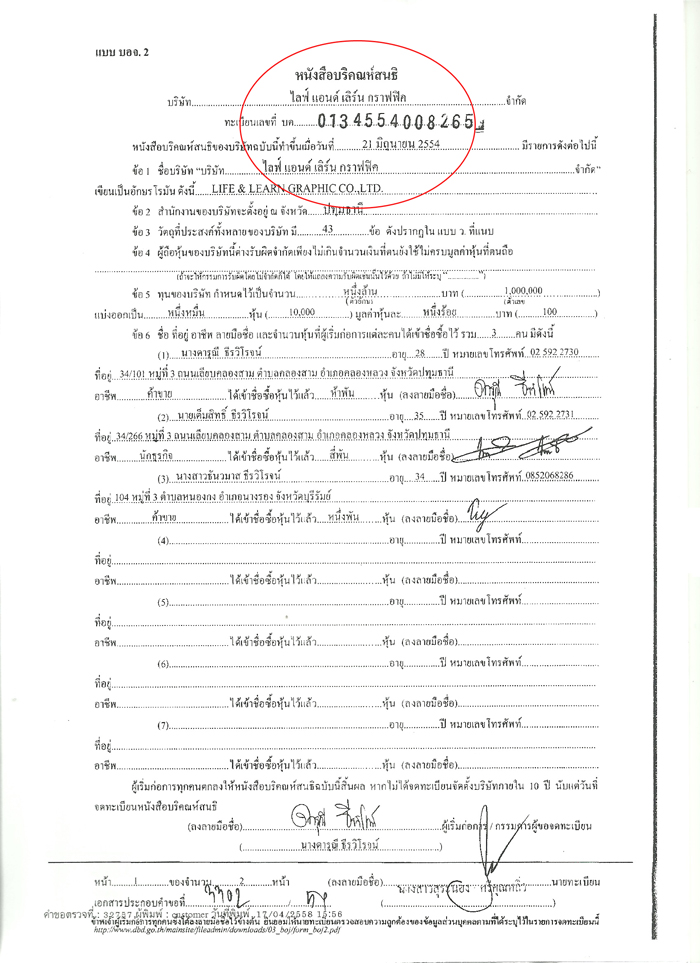 แบบ บอจ. 2
หนังสือบริคณห์สนธิ
บริษัท ไลฟ์ แอนด์ เลิร์น กราฟฟิค จำกัด
ทะเบียนเลขที่ บค. 0134554008265
หนังสือบริคณห์สนธิของบริษัทฉบับนี้ทำขึ้นเมื่อวันที่ 21 มิถุนายน 2554 มีรายการดังต่อไปนี้
ข้อ 1 ชื่อบริษัท "บริษัท ไลฟ์ แอนด์ เลิร์น กราฟฟิค จำกัด"
เขียนเป็นอักษรโรมัน ดังนี้ LIFE & LEARN GRAPHIC CO.,LTD.
ข้อ 2 สำนักงานของบริษัทจะตั้งอยู่ ณ จังหวัด ปทุมธานี
ข้อ 3 วัตถุที่ประสงค์ทั้งหลายของบริษัท มี 43 ข้อ ดังปรากฏใน แบบ ว. ที่แนบ
ข้อ 4 ผู้ถือหุ้นของบริษัทนี้ต่างรับผิดจำกัดเพียงไม่เกินจำนวนเงินที่ตนยังใช้ไม่ครบมูลค่าหุ้นที่ตนถือ
(ถ้าจะให้กรรมการรับผิดโดยไม่จำกัดก็ได้ โดยให้แถลงความรับผิดเช่นนั้นไว้ด้วย ถ้าไม่มีให้ระบุ "..............")
ข้อ 5 ทุนของบริษัท กำหนดไว้เป็นจำนวน หนึ่งล้าน บาท ( 1,000,000 )
(ตัวอักษร) (ตัวเลข)
แบ่งออกเป็น หนึ่งหมื่น หุ้น ( 10,000 ) มูลค่าหุ้นละ หนึ่งร้อย บาท ( 100 )
ข้อ 6 ชื่อ ที่อยู่ อาชีพ ลายมือชื่อ และจำนวนหุ้นที่ผู้เริ่มก่อการแต่ละคนได้เข้าชื่อซื้อไว้ รวม 3 คน มีดังนี้
(1) นางดารุณี ธีรวิโรจน์ อายุ 28 ปี หมายเลขโทรศัพท์ 02 592 2730
ที่อยู่ 34/101 หมู่ที่ 3 ถนนเลียบคลองสาม ตำบลคลองสาม อำเภอคลองหลวง จังหวัดปทุมธานี
อาชีพ ค้าขาย ได้เข้าชื่อซื้อหุ้นไว้แล้ว ห้าพัน หุ้น (ลงลายมือชื่อ)
(2) นายเต็มสิทธิ์ ธีรวิโรจน์ อายุ 35 ปี หมายเลขโทรศัพท์ 02 592 2731
ที่อยู่ 34/266 หมู่ที่ 3 ถนนเลียบคลองสาม ตำบลคลองสาม อำเภอคลองหลวง จังหวัดปทุมธานี
อาชีพ นักธุรกิจ ได้เข้าชื่อซื้อหุ้นไว้แล้ว สี่พัน หุ้น (ลงลายมือชื่อ)
(3) นางสาวธันวมาส ธีรวิโรจน์ อายุ 34 ปี หมายเลขโทรศัพท์ 0852068286
ที่อยู่ 104 หมู่ที่ 3 ตำบลหนองกง อำเภอนางรอง จังหวัดบุรีรัมย์
อาชีพ ค้าขาย ได้เข้าชื่อซื้อหุ้นไว้แล้ว หนึ่งพัน หุ้น (ลงลายมือชื่อ)
(4) อายุ ปี หมายเลขโทรศัพท์
ที่อยู่
อาชีพ ได้เข้าชื่อซื้อหุ้นไว้แล้ว หุ้น (ลงลายมือชื่อ)
(5) อายุ ปี หมายเลขโทรศัพท์
ที่อยู่
อาชีพ ได้เข้าชื่อซื้อหุ้นไว้แล้ว หุ้น (ลงลายมือชื่อ)
(6) อายุ ปี หมายเลขโทรศัพท์
ที่อยู่
อาชีพ ได้เข้าชื่อซื้อหุ้นไว้แล้ว หุ้น (ลงลายมือชื่อ)
(7) อายุ ปี หมายเลขโทรศัพท์
ที่อยู่
อาชีพ ได้เข้าชื่อซื้อหุ้นไว้แล้ว หุ้น (ลงลายมือชื่อ)
ผู้เริ่มก่อการทุกคนตกลงให้หนังสือบริคณห์สนธิฉบับนี้สิ้นผล หากไม่ได้จดทะเบียนจัดตั้งบริษัทภายใน 10 ปี นับแต่วันที่
จดทะเบียนหนังสือบริคณห์สนธิ
(ลงลายมือชื่อ) ผู้เริ่มก่อการ / กรรมการผู้ขอจดทะเบียน
( นางดารุณี ธีรวิโรจน์ )
หน้า 1 ของจำนวน 2 หน้า (ลงลายมือชื่อ) นายทะเบียน
เอกสารประกอบคำขอที่ 3302 /
คำขอตรวจที่ : 32757 ผู้พิมพ์ : customer วันที่พิมพ์ 17/04/2558 15:56
http://www.dbd.go.th/mainsite/fileadmin/downloads/03_boj/form_boj2.pdf